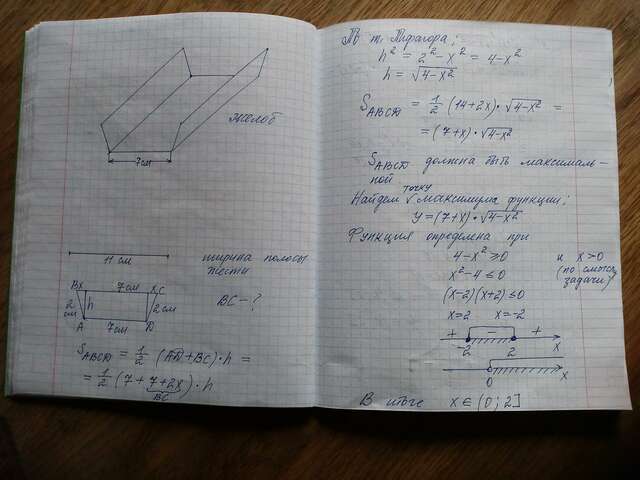 желоб
7см
11 см
ширина полосы
жести
B x 7см x C
2 см h 2 см
A 7см D
BC - ?
S_ABCD = 1/2 (AD + BC) · h =
= 1/2 (7 + 7 + 2x) · h
BC
По т. Пифагора:
h² = 2² - x² = 4 - x²
h = √(4-x²)
S_ABCD = 1/2 (14+2x) · √(4-x²) =
= (7+x) · √(4-x²)
S_ABCD должна быть максималь-
ной
точку
Найдем √ максимума функции:
y = (7+x) · √(4-x²)
Функция определена при
4 - x² ≥ 0 и x > 0
x² - 4 ≤ 0 (по смыслу
(x-2)(x+2) ≤ 0 задачи)
x = 2 x = -2
+ - +
-2 2 x
0 x
В итоге x ∈ (0; 2]